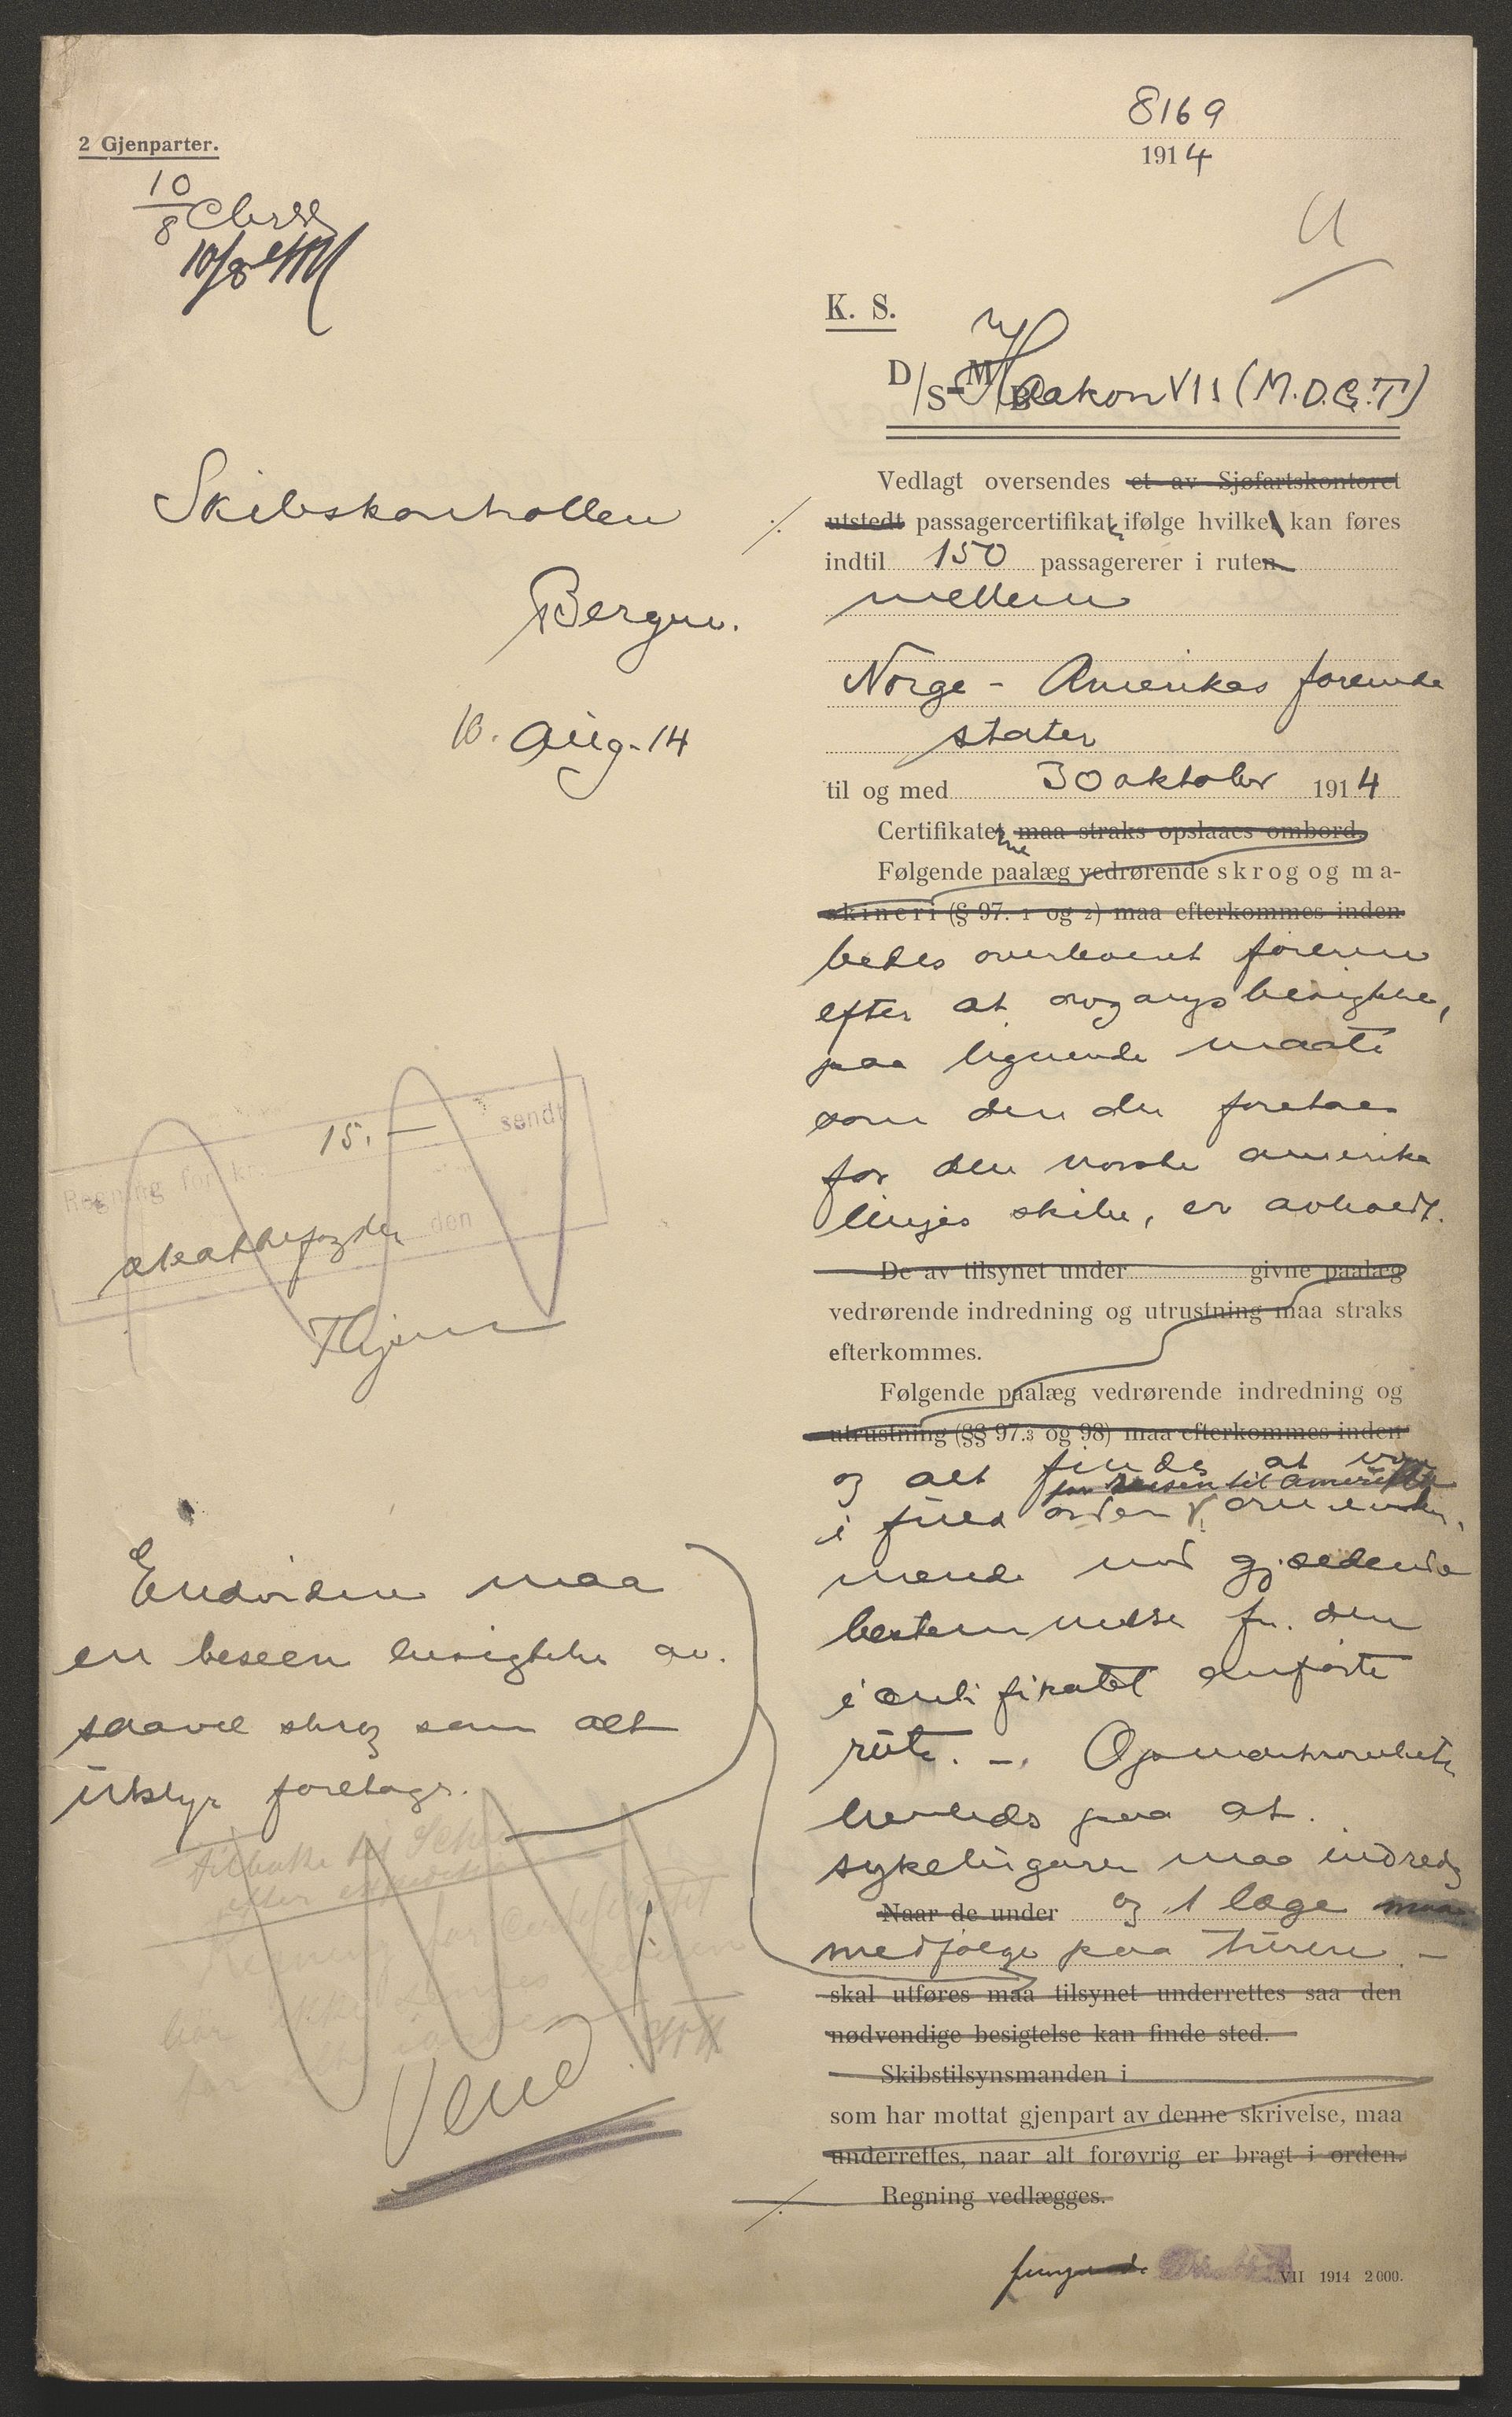 2 Gjenparter.
10/8
10/8
Skibskontrollen
Bergen.
10. Aug. 14
Regning for kr. 15.- sendt
den
Endvidere maa
en besigtelse av
saavel skrog som alt
utstyr foretages.
Vend!
8169
1914
K. S.
D/S - M/B Haakon VII (M.D.G.T)
Vedlagt oversendes et av Sjøfartskontoret
utstedt passagercertifikat ifølge hvilket kan føres
indtil 150 passagererer i ruten
mellem
Norge - Amerikas forende
stater
til og med 30 oktober 1914
Certifikatet maa straks opslaaes ombord.
Følgende paalæg vedrørende skrog og ma-
skineri (§ 97. 1 og 2) maa efterkommes inden
bedes overlevert føreren
efter at avgangsbesigtelse,
paa lignende maate
som den der foretaes
for den norske amerika
linjes skibe, er avholdt.
De av tilsynet under givne paalæg
vedrørende indredning og utrustning maa straks
efterkommes.
Følgende paalæg vedrørende indredning og
utrustning (§§ 97.3 og 98) maa efterkommes inden
og alt findes at være
for reisen til Amerika
i fuld orden
mende med gjældende
bestemmelse for den
i certifikatet anførte
rute. -. Opmerksomheten
henledes paa at
sykelugarer maa indredes
Naar de under og 1 læge maa
medfølge paa turen -
skal utføres maa tilsynet underrettes saa den
nødvendige besigtelse kan finde sted.
Skibstilsynsmanden i
som har mottat gjenpart av denne skrivelse, maa
underrettes, naar alt forøvrig er bragt i orden.
Regning vedlægges.
VII 1914 2000.